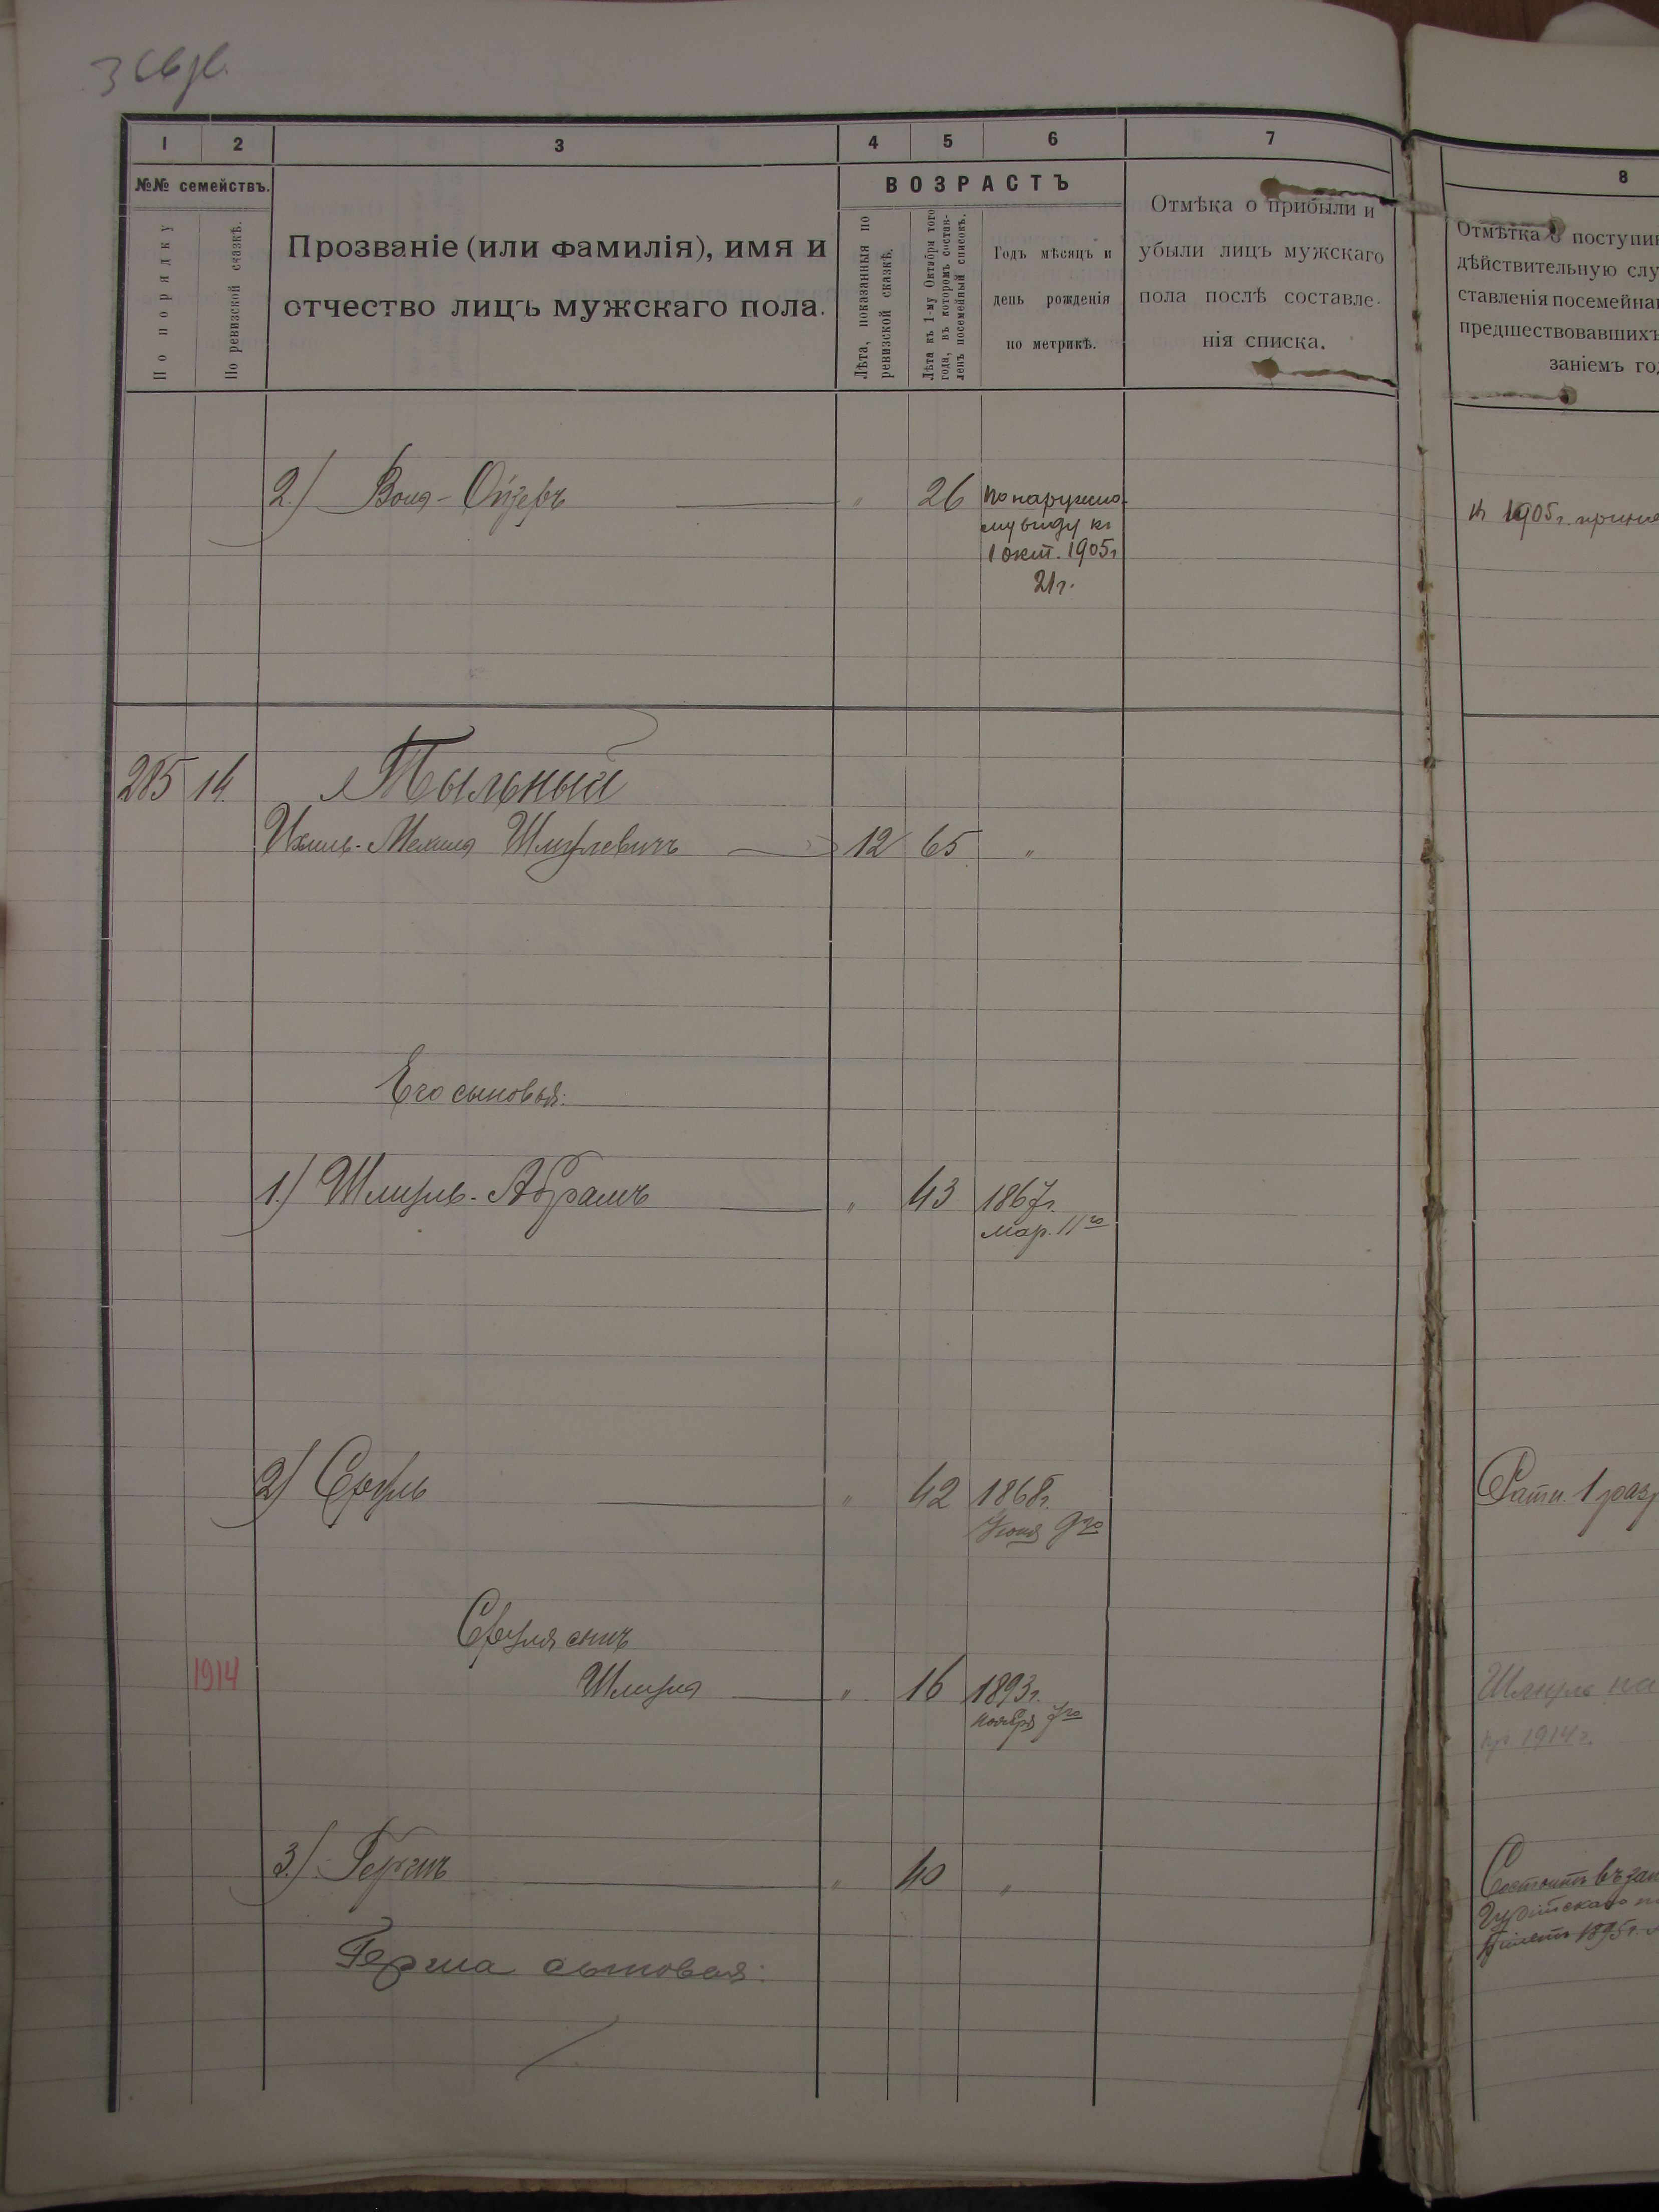 1 2 3 4 5 6 7
№№ семействъ.
По порядку
По ревизской сказкѣ.
Прозваніе (или фамилія), имя и
отчество лицъ мужскаго пола.
ВОЗРАСТЪ
Лѣта, показанныя по
ревизской сказкѣ.
Лѣта къ 1-му Октября того
года, въ которомъ состав-
ленъ посемейный списокъ.
Годъ мѣсяцъ и
день рожденія
по метрикѣ.
Отмѣка о прибыли и
убыли лицъ мужскаго
пола послѣ составле-
нія списка.
2.) Воля-Ойзеръ " 26 По наружно-
му виду къ
1 окт. 1905г
21 г.
285 14.
Тыльный
Ихиль-Мехиля Шмулевичъ 12 65 "
Его сыновья:
1.) Шмуль-Абрамъ " 43 1867г.
мар. 11го
2) Сруль " 42 1868г.
Іюня 9го
Сруля сынъ
1914 Шмуля " 16 1893г.
ноября 7го
3.) Гершъ " 40 "
Герша сыновья:
8
Отмѣтка о поступи
дѣйствительную слу
ставленія посемейна
предшествовавшихъ
заніемъ го
1905г. приня
Ратн. 1 разр
Шмуль на
пр 1914 г.
Состоитъ въ зап
1895 г.